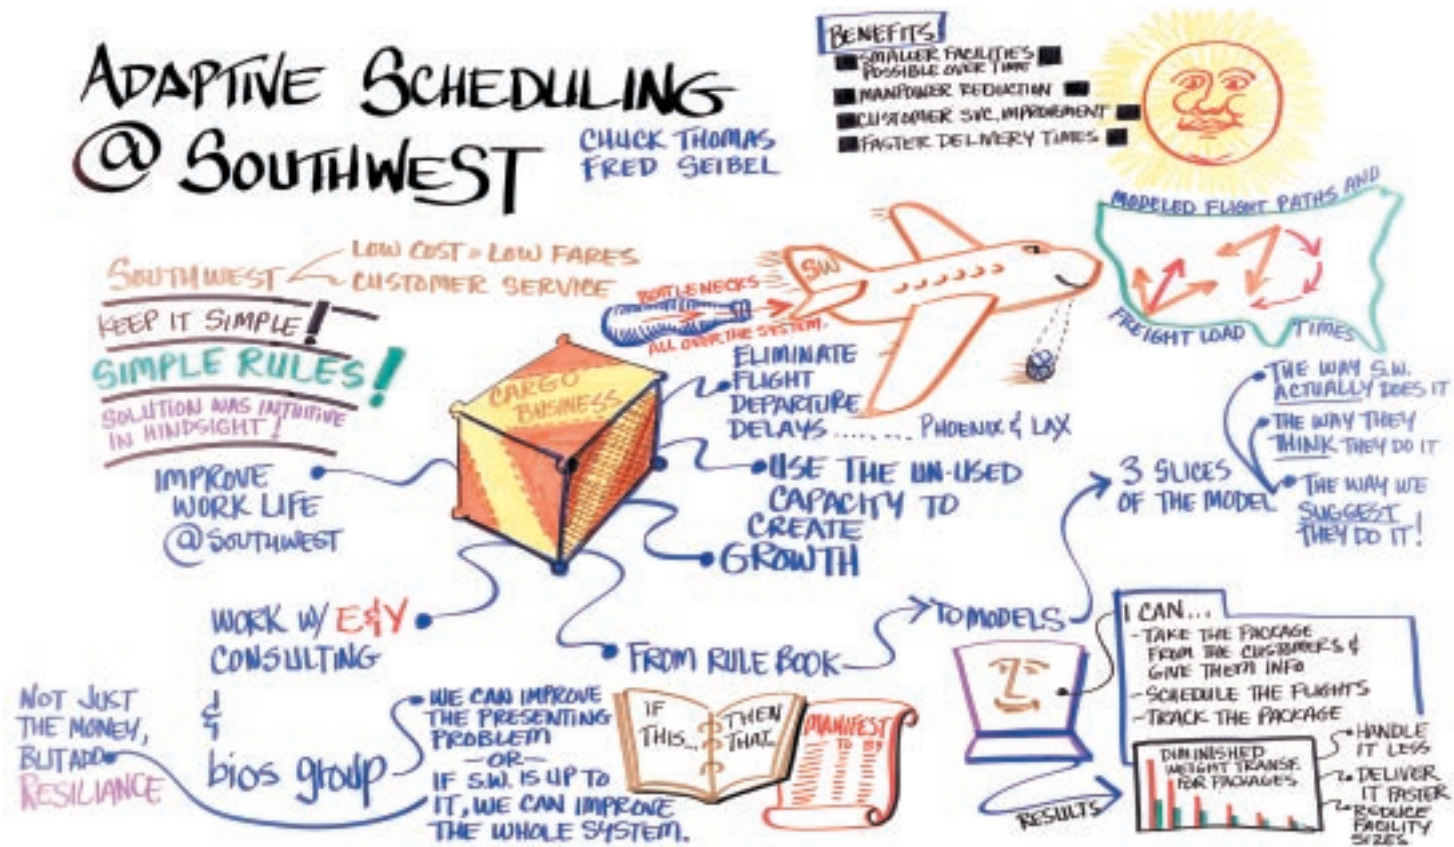 ADAPTIVE SCHEDULING
@ SOUTHWEST
CHUCK THOMAS
FRED SEIBEL
BENEFITS
SMALLER FACILITIES
POSSIBLE OVER TIME
MANPOWER REDUCTION
CUSTOMER SVC. IMPROVEMENT
FASTER DELIVERY TIMES
MODELED FLIGHT PATHS AND
FREIGHT LOAD TIMES
SOUTHWEST
LOW COST = LOW FARES
CUSTOMER SERVICE
KEEP IT SIMPLE!
SIMPLE RULES!
SOLUTION WAS INTUITIVE
IN HINDSIGHT!
BOTTLENECKS
ALL OVER THE SYSTEM.
SW
CARGO
BUSINESS
ELIMINATE
FLIGHT
DEPARTURE
DELAYS ........ PHOENIX & LAX
USE THE UN-USED
CAPACITY TO
CREATE
GROWTH
IMPROVE
WORK LIFE
@ SOUTHWEST
WORK W/ E&Y
CONSULTING
&
bios group
NOT JUST
THE MONEY,
BUT ADD
RESILIANCE
WE CAN IMPROVE
THE PRESENTING
PROBLEM
-OR-
IF S.W. IS UP TO
IT, WE CAN IMPROVE
THE WHOLE SYSTEM.
FROM RULE BOOK
IF
THIS...
THEN
THAT..
MANIFEST
TO MODELS
3 SLICES
OF THE MODEL
THE WAY S.W.
ACTUALLY DOES IT
THE WAY THEY
THINK THEY DO IT
THE WAY WE
SUGGEST
THEY DO IT!
I CAN...
-TAKE THE PACKAGE
FROM THE CUSTOMERS &
GIVE THEM INFO
-SCHEDULE THE FLIGHTS
-TRACK THE PACKAGE
RESULTS
DIMINISHED
WEIGHT TRANSF.
FOR PACKAGES
HANDLE
IT LESS
DELIVER
IT FASTER
REDUCE
FACILITY
SIZES